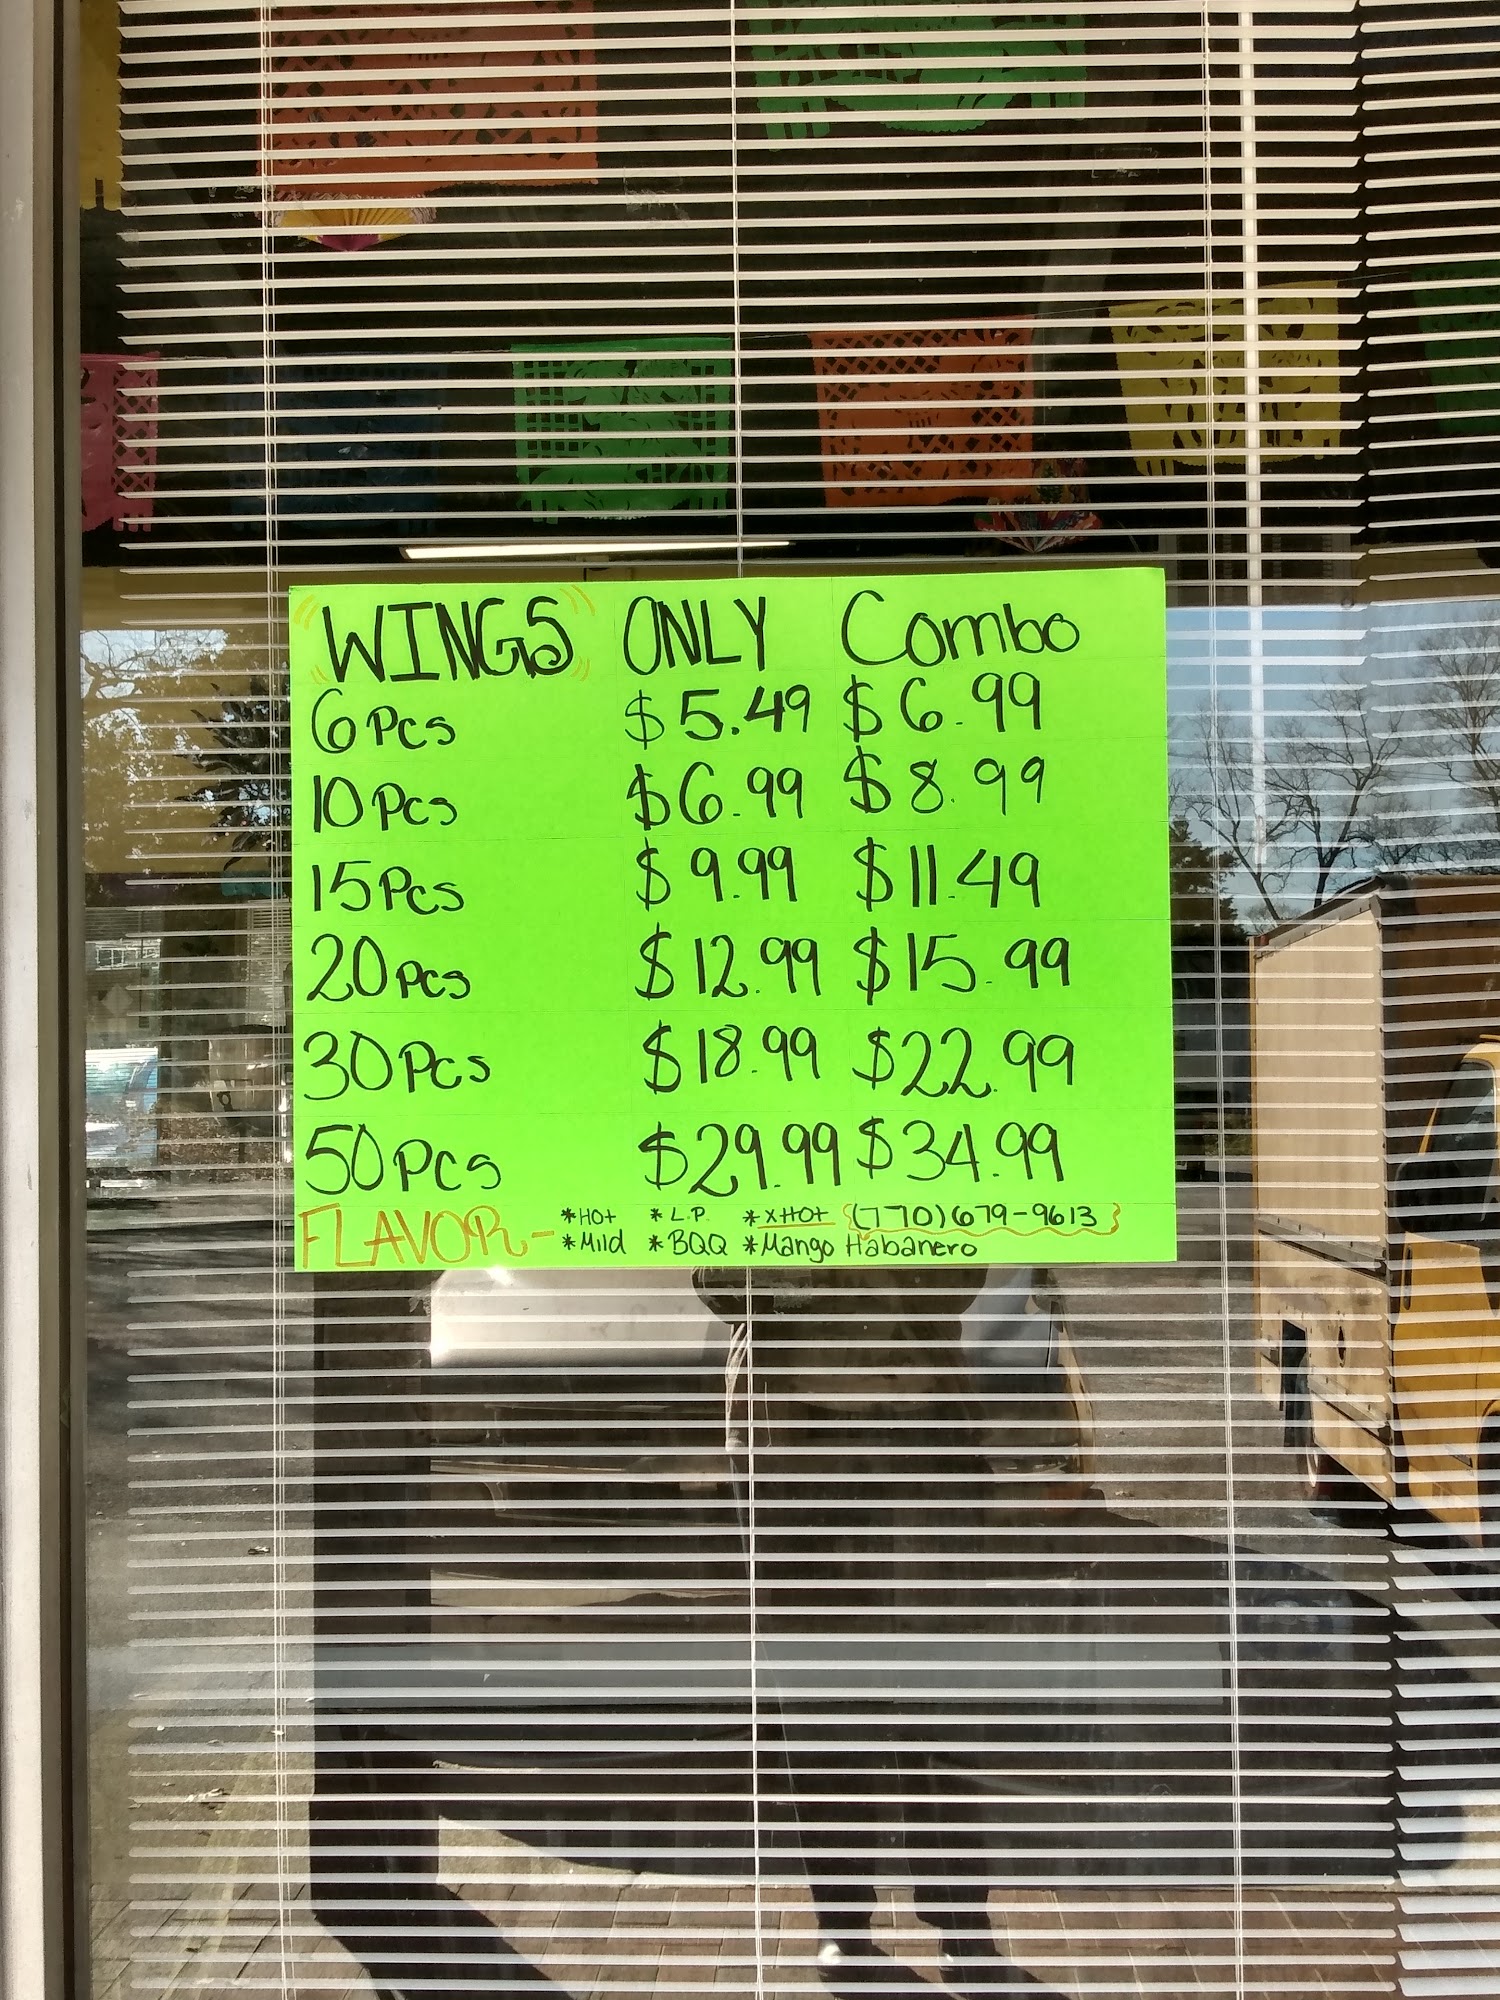 "WINGS" ONLY Combo
6 Pcs $5.49 $6.99
10 Pcs $6.99 $8.99
15 Pcs $9.99 $11.49
20 Pcs $12.99 $15.99
30 Pcs $18.99 $22.99
50 Pcs $29.99 $34.99
FLAVOR- *HOt *L.P. *XHOt {(770)679-9613}
*Mild *BQQ *Mango Habanero